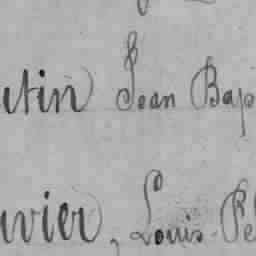 ctin Jean Bap
uvier, Louis-Pe